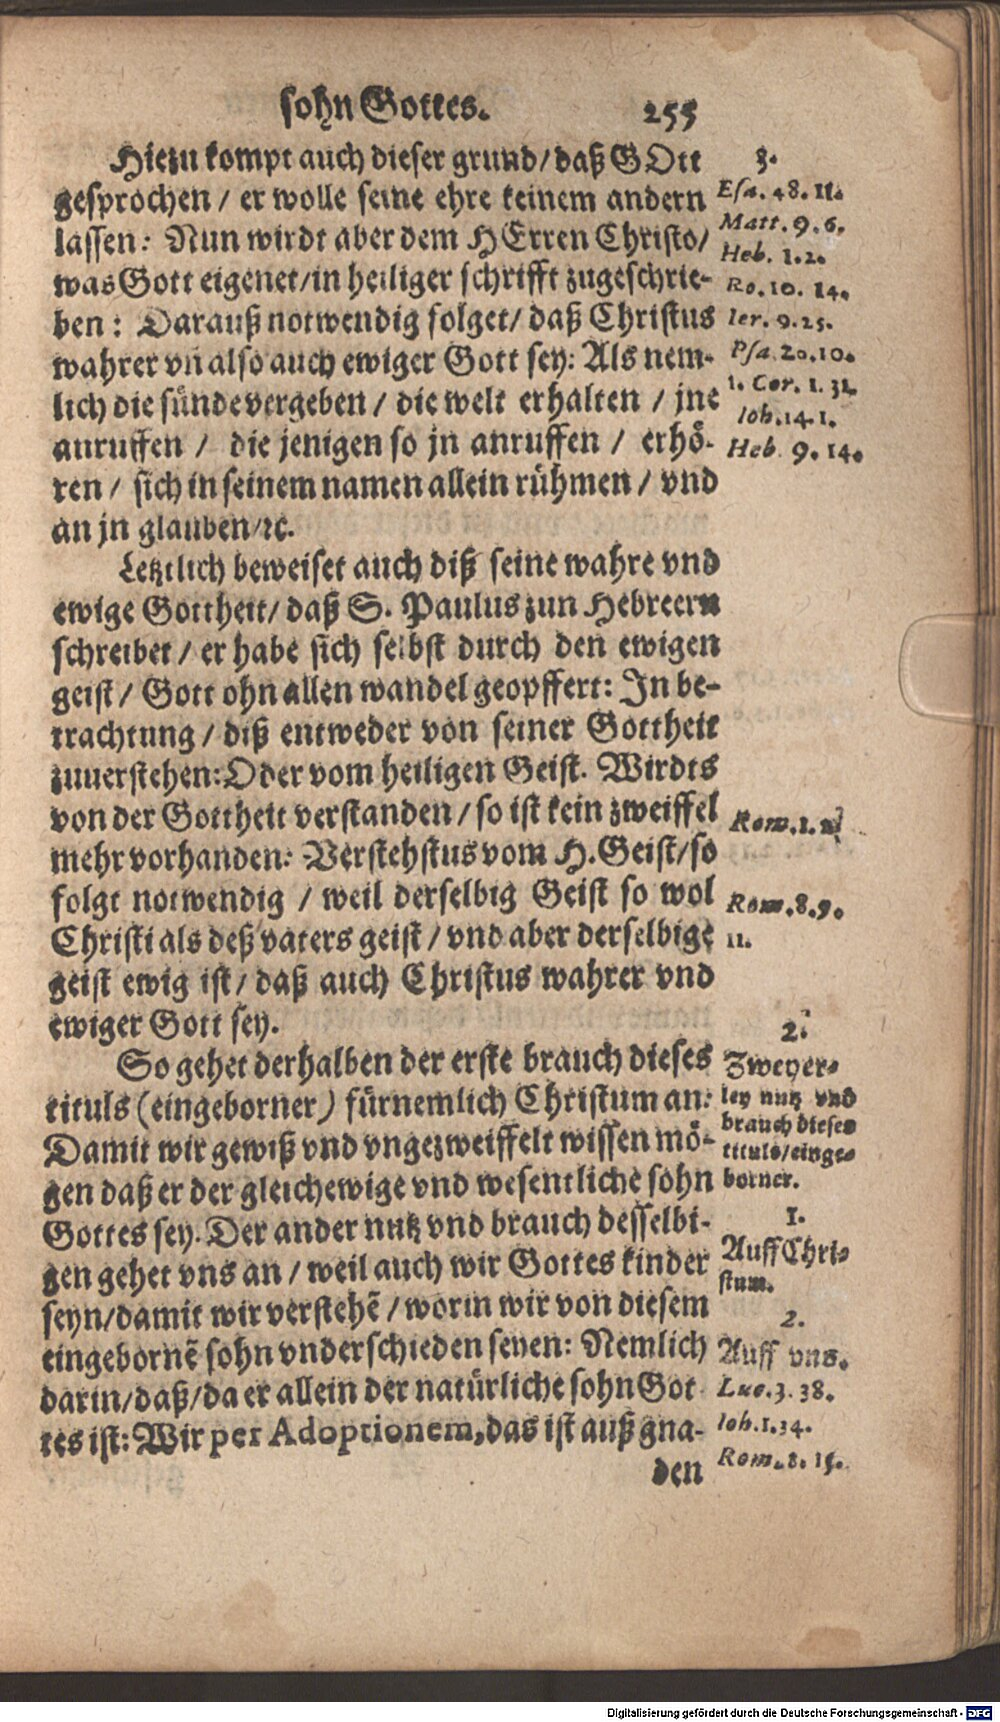 sohn Gottes. 255
Hiezu kompt auch dieser grund/ daß GOtt
gesprochen / er wolle seine ehre keinem andern
lassen: Nun wirdt aber dem HErren Christo/
was Gott eigenet/ in heiliger schrifft zugeschrie-
ben: Darauß notwendig folget/ daß Christus
wahrer vñ also auch ewiger Gott sey: Als nem-
lich die sünde vergeben / die welt erhalten / jne
anruffen / die jenigen so jn anruffen / erhö-
ren / sich in seinem namen allein rühmen / vnd
an jn glauben/ꝛc.
3.
Esa. 48. 11.
Matt. 9. 6.
Heb. 1. 2.
Ro. 10. 14.
Ier. 9. 25.
Psa. 20. 10.
1. Cor. 1. 31.
Ioh. 14. 1.
Heb. 9. 14.
Letztlich beweiset auch diß seine wahre vnd
ewige Gottheit/ daß S. Paulus zun Hebreern
schreibet / er habe sich selbst durch den ewigen
geist / Gott ohn allen wandel geopffert: In be-
trachtung / diß entweder von seiner Gottheit
zuuerstehen: Oder vom heiligen Geist. Wirdts
von der Gottheit verstanden / so ist kein zweiffel
mehr vorhanden: Verstehstus vom H. Geist/ so
folgt notwendig / weil derselbig Geist so wol
Christi als deß vaters geist / vnd aber derselbige
geist ewig ist/ daß auch Christus wahrer vnd
ewiger Gott sey.
Rom. 1.
Rom. 8. 9.
11.
So gehet derhalben der erste brauch dieses
tituls (eingeborner) fürnemlich Christum an:
Damit wir gewiß vnd vngezweiffelt wissen mö-
gen daß er der gleichewige vnd wesentliche sohn
Gottes sey. Der ander nutz vnd brauch desselbi-
gen gehet vns an / weil auch wir Gottes kinder
seyn/damit wir verstehẽ / worin wir von diesem
eingebornẽ sohn vnderschieden seyen: Nemlich
darin/daß/da er allein der natürliche sohn Got
tes ist: Wir per Adoptionem, das ist auß gna-
den
2.
Zweyer-
ley nutz vnd
brauch dieses
tituls/einge-
borner.
1.
Auff Chri-
stum.
2.
Auff vns.
Luc. 3. 38.
Ioh. 1. 34.
Rom. 8. 15.
Digitalisierung gefördert durch die Deutsche Forschungsgemeinschaft - DFG